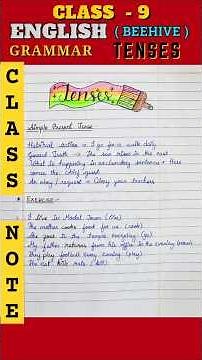 CLASS - 9
ENGLISH ( BEEHIVE )
GRAMMAR TENSES
CLASS NOTE
Tenses
Simple Present Tense
Habitual action = I go for a walk daily
General Truth → The sun rises in the east
What is happening in exclamatory sentence = Here comes the chief guest
Obey your teachers
Exercise -
I live in Model Town (live)
The mother cooks food for us (cook)
She goes to the temple everyday (go)
My father returns from his office in the evening
They play football every evening (play)